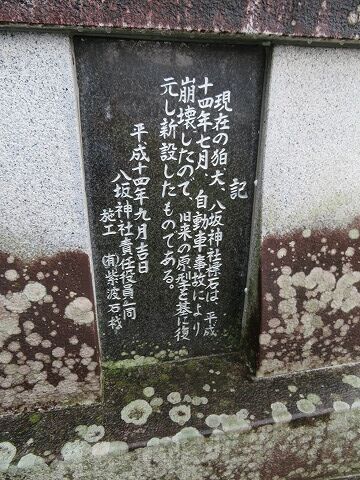 記
現在の狛犬、八坂神社標石は、平成
十四年七月、自動車事故により
崩壊したので、旧来の原型を基に復
元し新設したものである。
平成十四年九月吉日
八坂神社責任役員一同
施工 ㈲紫波石材